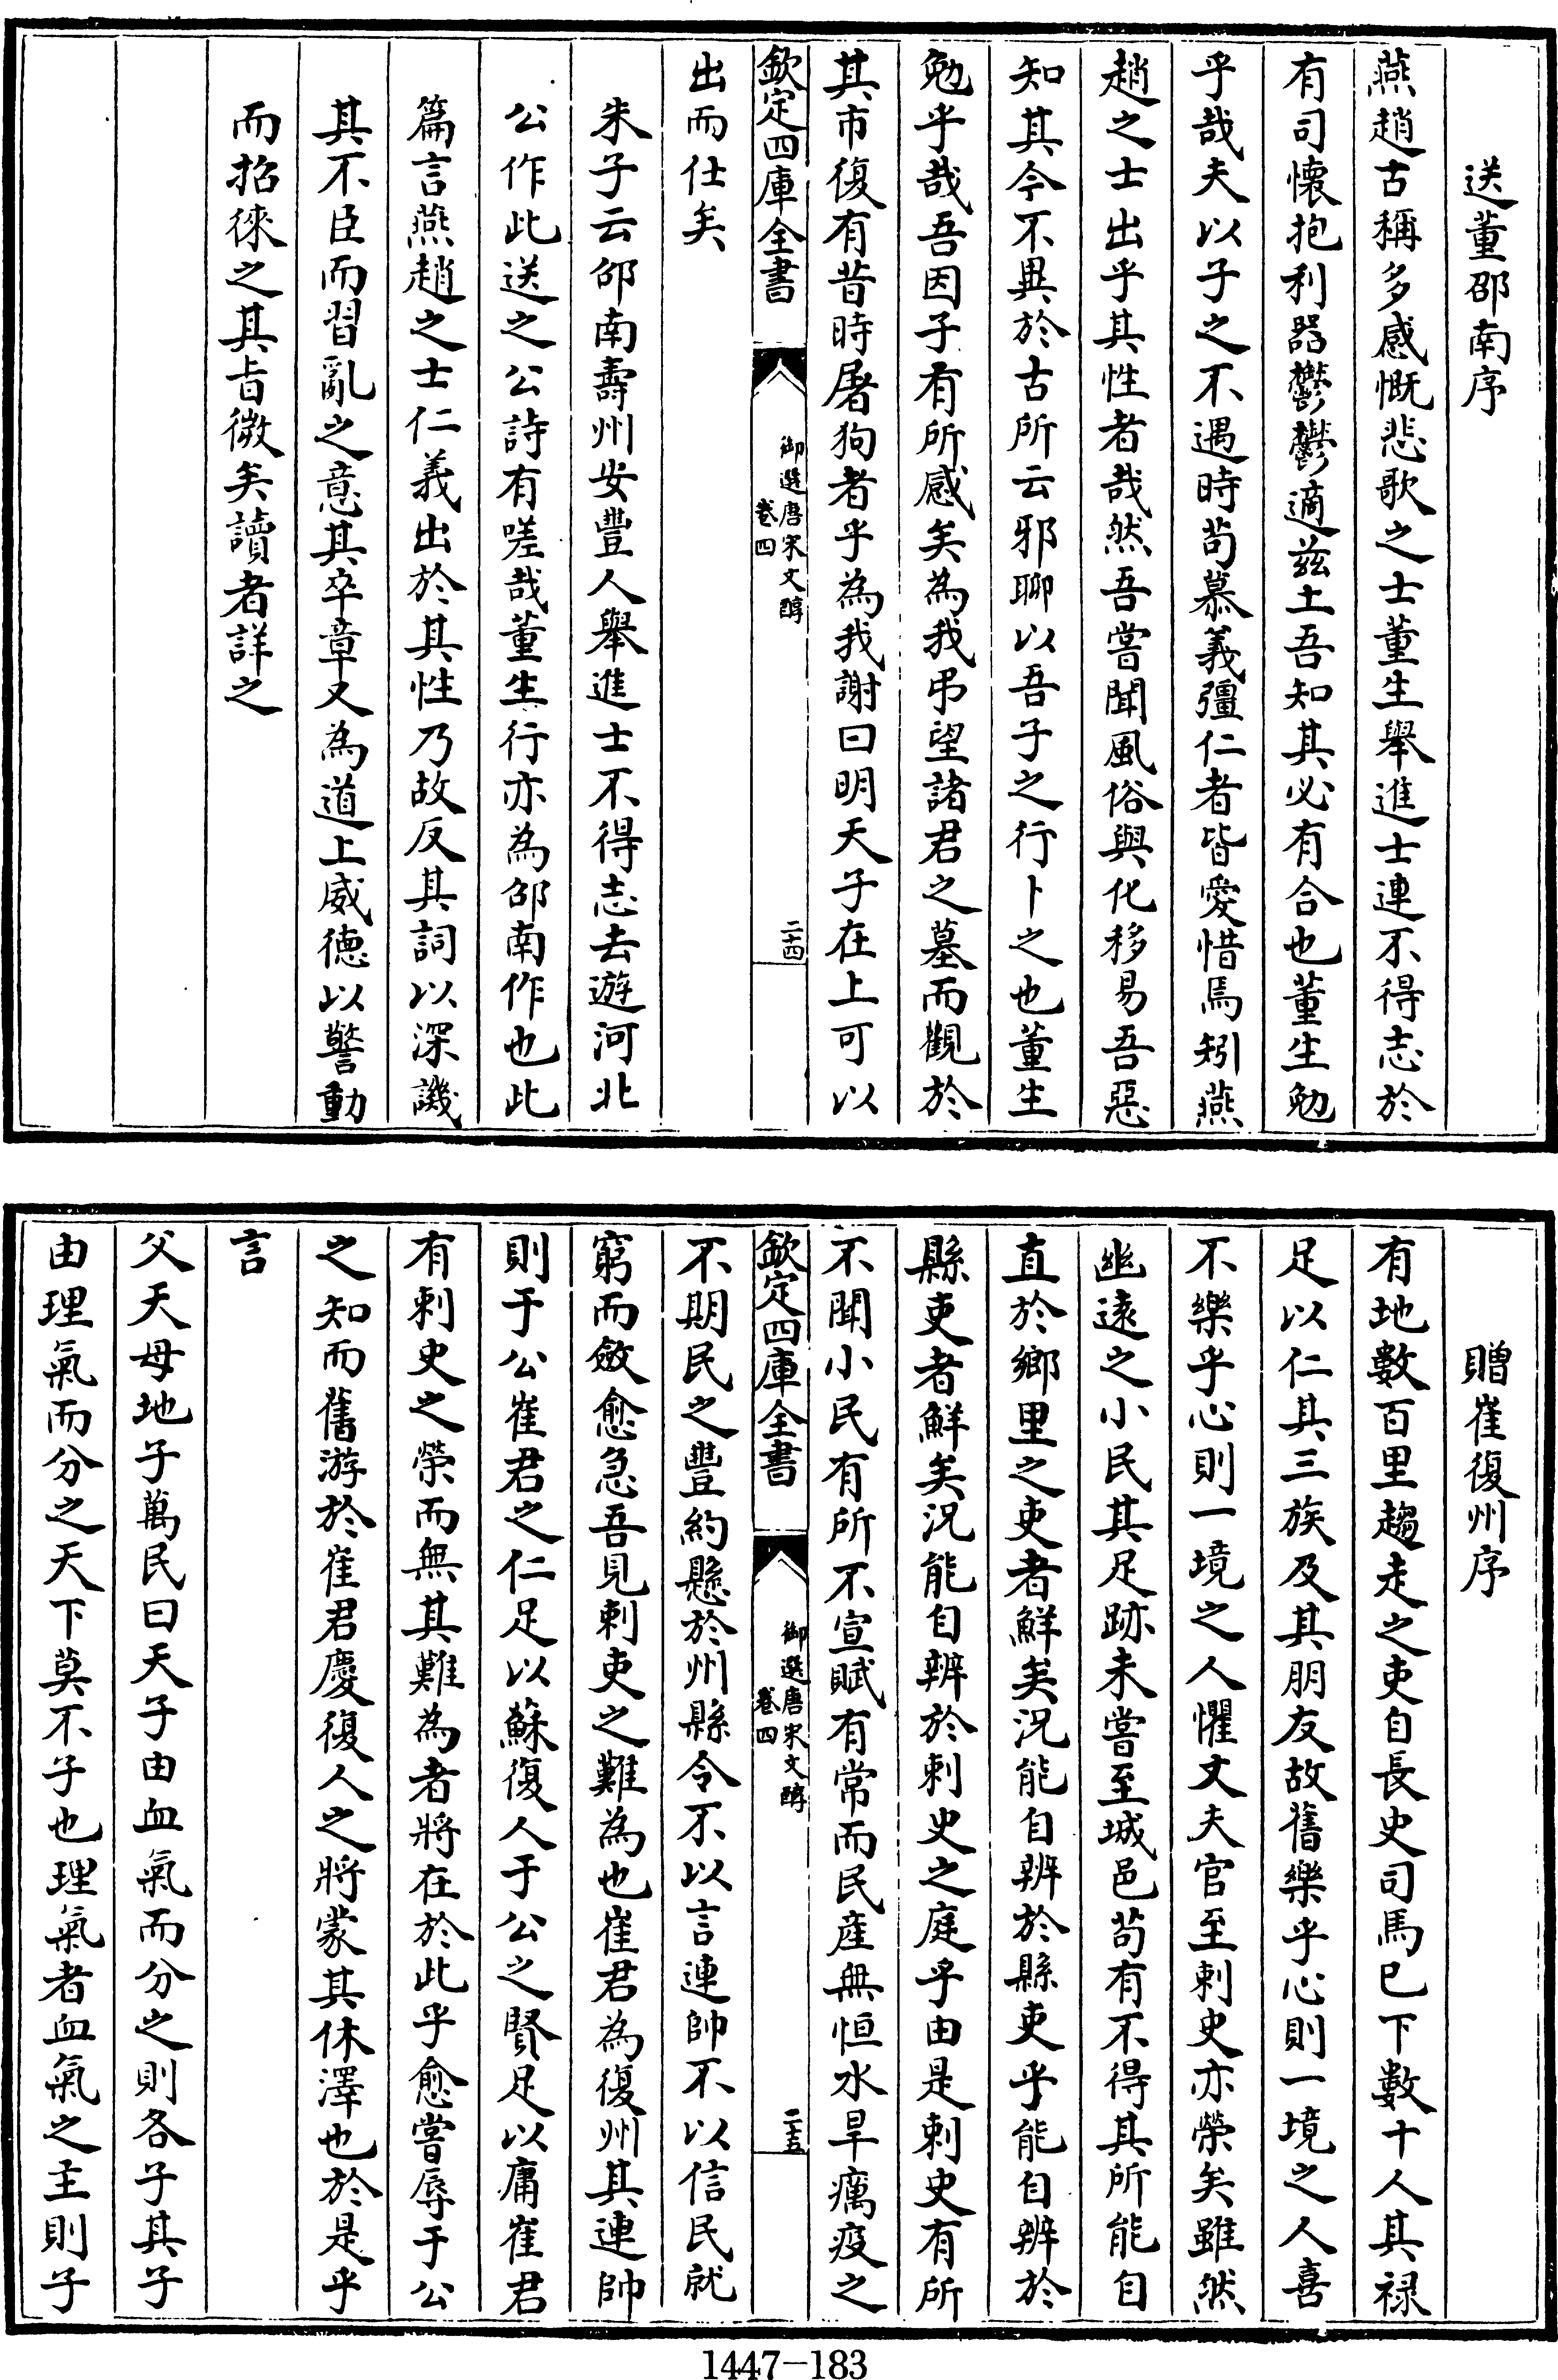 送董邵南序
燕趙古稱多感慨悲歌之士董生舉進士連不得志於
有司懷抱利器鬱鬱適兹土吾知其必有合也董生勉
乎哉夫以子之不遇時茍慕義彊仁者皆愛惜焉矧燕
趙之士出乎其性者哉然吾嘗聞風俗與化移易吾惡
知其今不異於古所云邪聊以吾子之行卜之也董生
勉乎哉吾因子有所感矣為我弔望諸君之墓而觀於
其市復有昔時屠狗者乎為我謝曰明天子在上可以
欽定四庫全書
御選唐宋文醇
卷四
二十四
出而仕矣
朱子云邵南壽州安豐人舉進士不得志去遊河北
公作此送之公詩有嗟哉董生行亦為邵南作也此
篇言燕趙之士仁義出於其性乃故反其詞以深譏
其不臣而習亂之意其卒章又為道上威德以警動
而招徠之其旨微矣讀者詳之
贈崔復州序
有地數百里趨走之吏自長史司馬已下數十人其禄
足以仁其三族及其朋友故舊樂乎心則一境之人喜
不樂乎心則一境之人懼丈夫官至刺史亦榮矣雖然
幽遠之小民其足跡未嘗至城邑茍有不得其所能自
直於鄉里之吏者鮮矣況能自辨於縣吏乎能自辨於
縣吏者鮮矣況能自辨於刺史之庭乎由是刺史有所
不聞小民有所不宣賦有常而民産無恒水旱癘疫之
欽定四庫全書
御選唐宋文醇
卷四
二十五
不期民之豐約懸於州縣令不以言連帥不以信民就
窮而斂愈急吾見刺吏之難為也崔君為復州其連帥
則于公崔君之仁足以蘇復人于公之賢足以庸崔君
有刺史之榮而無其難為者將在於此乎愈嘗辱于公
之知而舊游於崔君慶復人之將蒙其休澤也於是乎
言
父天母地子萬民曰天子由血氣而分之則各子其子
由理氣而分之天下莫不子也理氣者血氣之主則子
1447-183